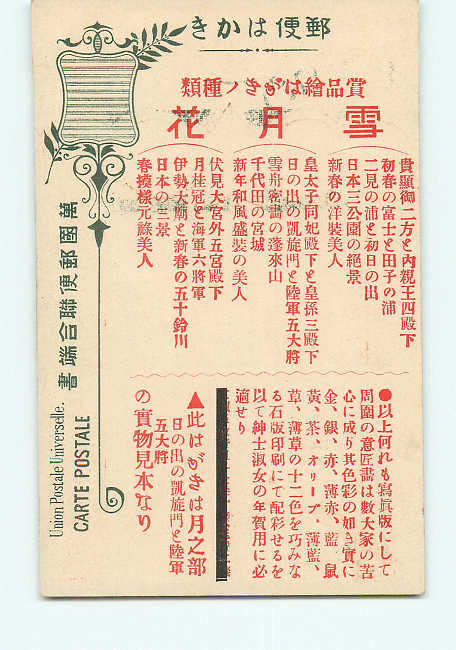 郵便はかき
賞品繪はがきノ種類
雪月花
貴顯御二方と内親王四殿下
初春の富士と田子の浦
二見の浦と初日の出
日本三公園の絶景
新春の洋裝美人
皇太子同妃殿下と皇孫三殿下
日の出の凱旋門と陸軍五大將
雪舟密畵の蓬來山
千代田の宮城
新年和風盛裝の美人
伏見大宮外五宮殿下
月桂冠と海軍六將軍
伊勢大廟と新春の五十鈴川
日本の三景
春摸樣元祿美人
●以上何れも寫眞版にして
周圍の意匠畵は數大家の苦
心に成り其色彩の如き實に
金、銀、赤、薄赤、藍、鼠
黃、茶、オリーブ、薄藍、
草、薄草の十二色を巧みな
る石版印刷にて配彩せるを
以て紳士淑女の年賀用に必
適せり
▲此はがきは月之部
日の出の凱旋門と陸軍
五大將
の實物見本なり
萬國郵便聯合端書
Union Postale Universelle.
CARTE POSTALE